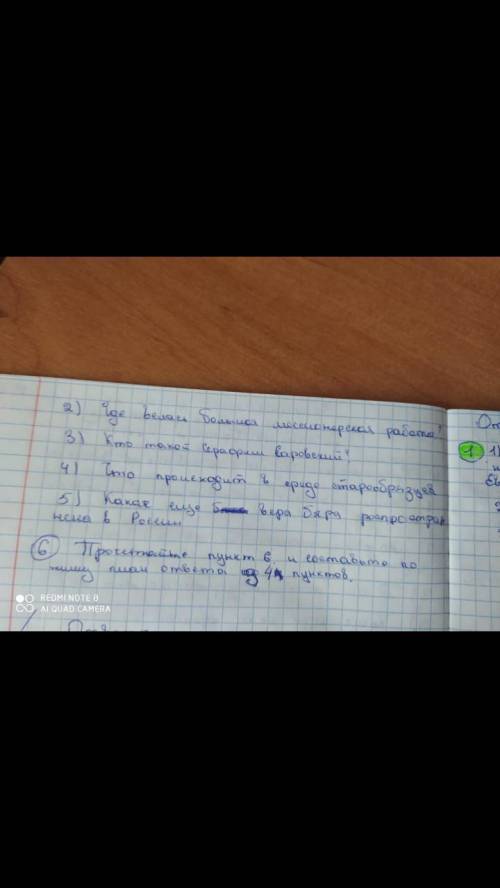 2) Где велась большая миссионерская работа?
3) Кто такой Серафим Саровский?
4) Что происходит в среде старообрядцев
5) Какая еще вера была распростра
нена в России
6 Прочитайте пункт 6 и составьте по
нему план ответа из 4 пунктов.
REDMI NOTE 8
AI QUAD CAMERA
1 1)